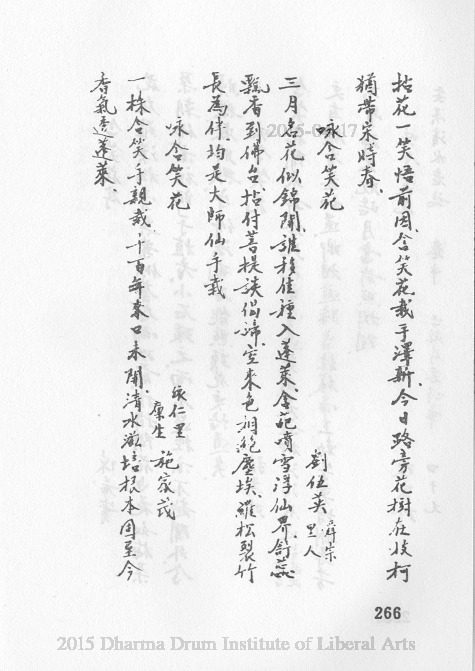 拈花一笑悟前因、含笑花栽手澤新、今日路旁花樹在、枝柯
猶帶宋時春、
咏含笑花
劉伍英 舜宗里人
三月名花似錦開、誰移佳種入蓬萊、含葩噴雪浮仙界、舒蕊
飄香到佛台、拈付菩提談偈諦、空來色相絕塵埃、羅松裂竹
長為伴、均是大師仙手栽
咏含笑花
依仁里 廩生 施家茂
一株含笑手親栽、千百年來口未開、清水滋培根本固、至今
香氣透蓬萊、
266
2015 Dharma Drum Institute of Liberal Arts